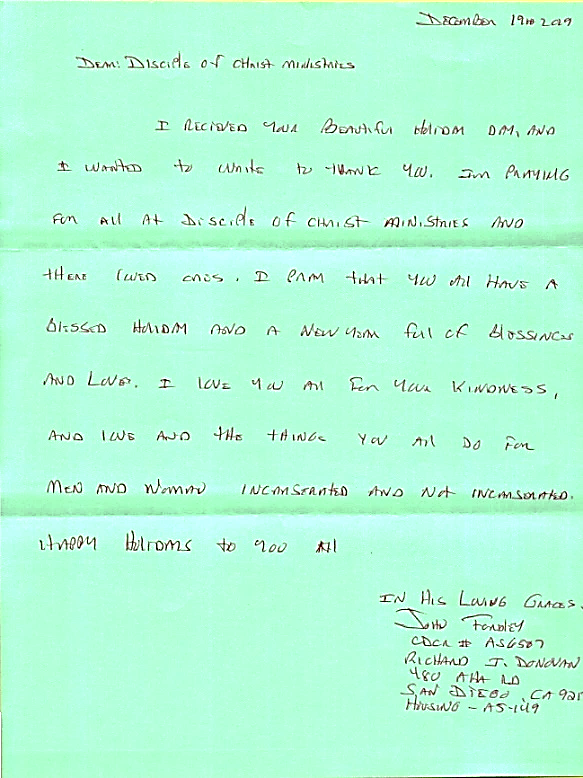 December 19th 2019
Dear: Disciple of Christ Ministries
I recieved your Beautiful Holiday Day, and
I wanted to write to thank you. Im praying
for all at Disciple of Christ Ministries and
there loved ones. I pray that you all have a
blessed Holiday and a new year full of blessings
and Love. I love you all for your kindness,
and love and the things you all do for
men and woman incarserated and not incarserated.
Happy Holidays to you all
In His Loving Graces,
John
CDCR # AS6507
Richard J. Donovan
480 Alta Rd
San Diego, CA 921
Housing - A5-149